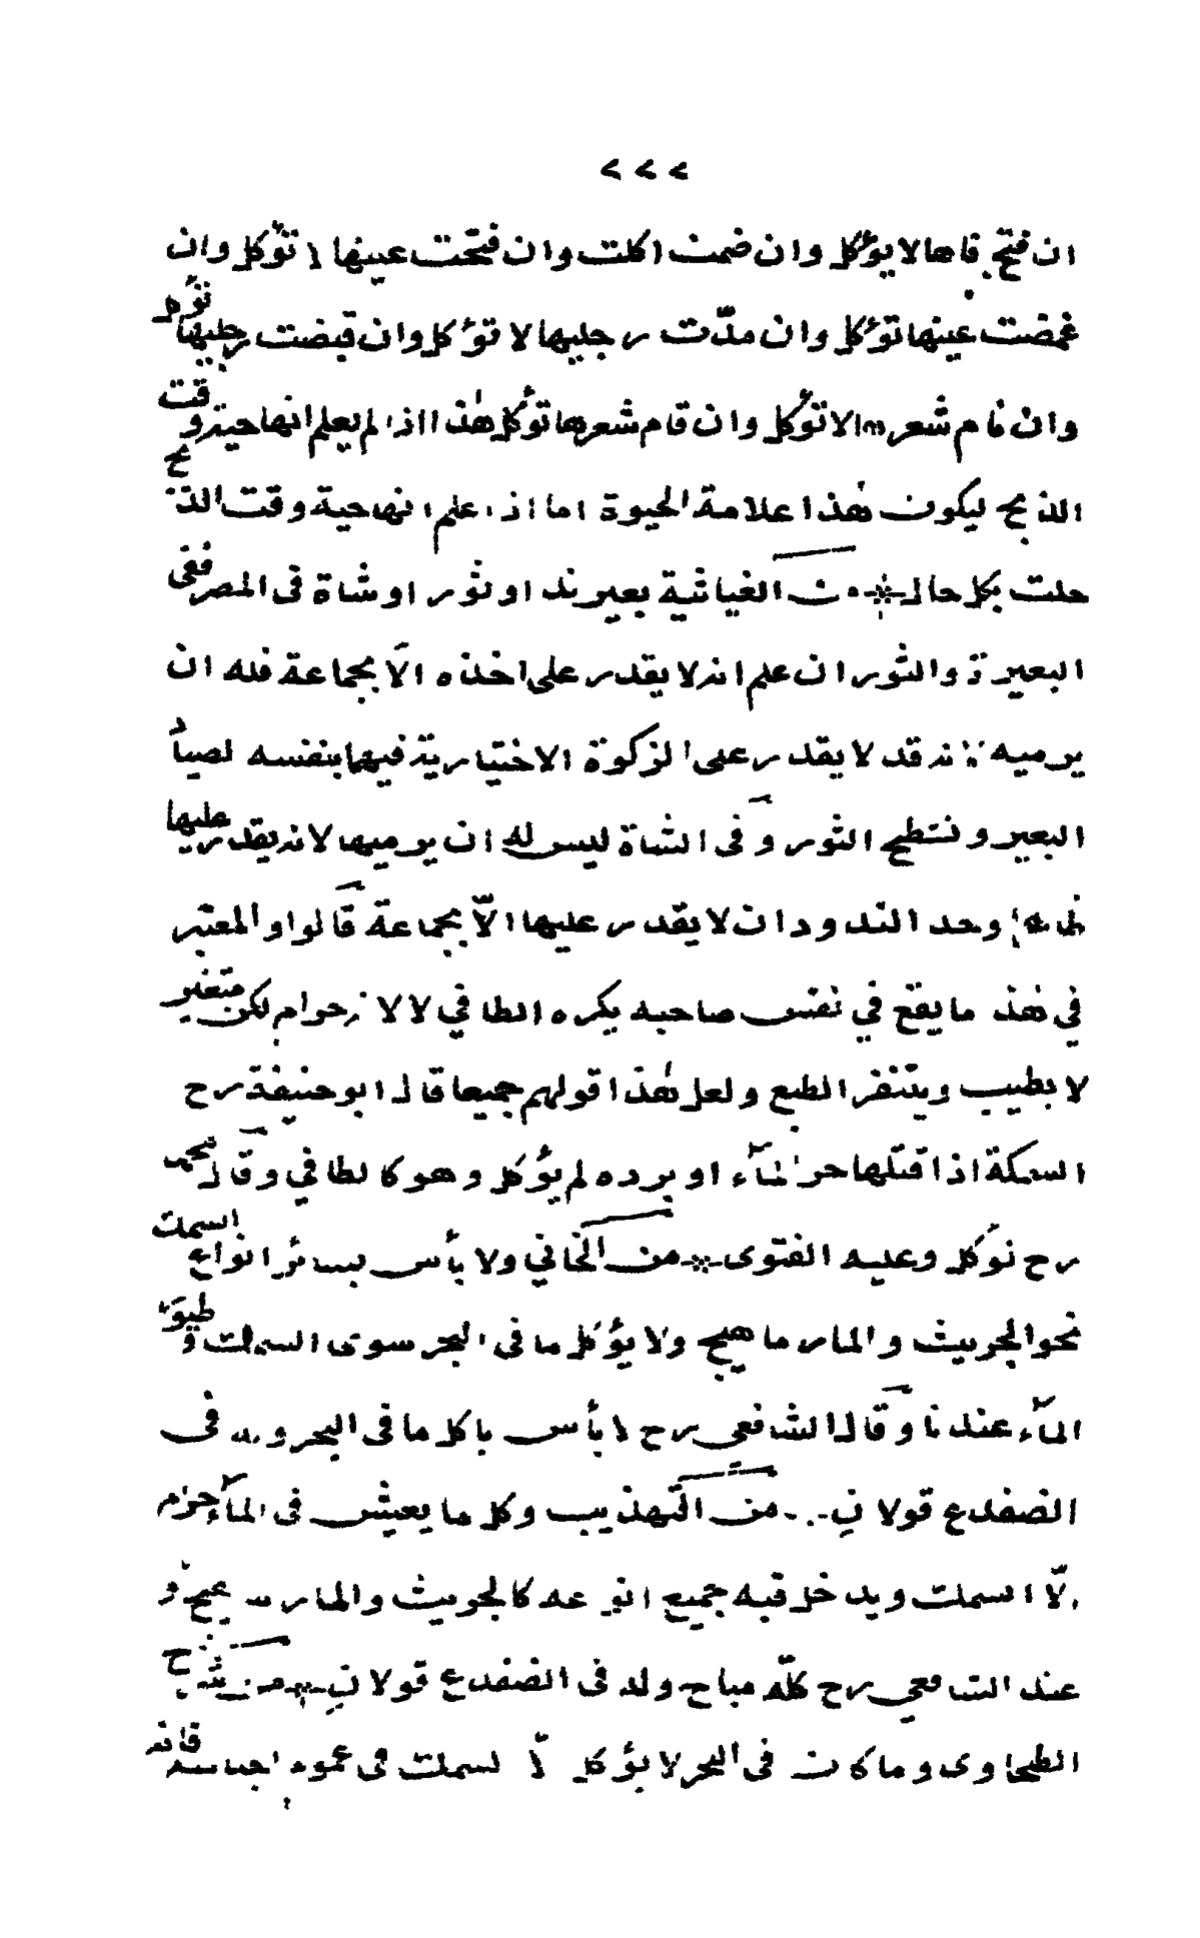 ٢٢٢
ان فتح فاها لا يؤكل وان ضمت اكلت وان فتحت عينها لا تؤكل وان
غمضت عينها تؤكل وان مدّت رجليها لا تؤكل وان قبضت رجليها تؤكل
وان نام شعرها لا تؤكل وان قام شعرها تؤكل هذا اذا لم يعلم انها حية وقت
الذبح ليكون هذا علامة الحيوة اما اذا علم انها حية وقت الذبح
حلت بكل حال من الغياثية بعير ند او ثور او شاة فى المصر ففى
البعير والثور ان علم انه لا يقدر على اخذه الا بجماعة فله ان
يرميه لانه قد لا يقدر على الزكوة الاختيارية فيهما بنفسه لصيال
البعير ونتطح الثور وفى الشاة ليس له ان يرميها لانه يقدر عليها
وحد الند ود ان لا يقدر عليها الاّ بجماعة قالوا والمعتبر
في هذا ما يقع في نفس صاحبه يكره الطافي لا لانه حرام لكن متغير
لا يطيب ويتنفر الطبع ولعل هذا قولهم جميعا قال ابو حنيفة رح
السمكة اذا قتلها حر الماء او برده لم يؤكل وهو كالطافي وقال محمد
رح تؤكل وعليه الفتوى من الخاني ولا بأس بسائر انواع السمك
نحو الجريث والمار ماهيج ولا يؤكل ما فى البحر سوى السمك و طير
الماء عندنا وقال الشافعي رح لا بأس باكل ما فى البحر وله فى
الضفدع قولان من التهذيب وكل ما يعيش فى الماء حرام
الاّ السمك ويدخل فيه جميع انواعه كالجريث والمار ماهيج و
عند الشافعي رح كلّه مباح وله فى الضفدع قولان من شرح
الطحاوى وما كان فى البحر لا يؤكل الاّ السمك فى عموم اجناسه فانه